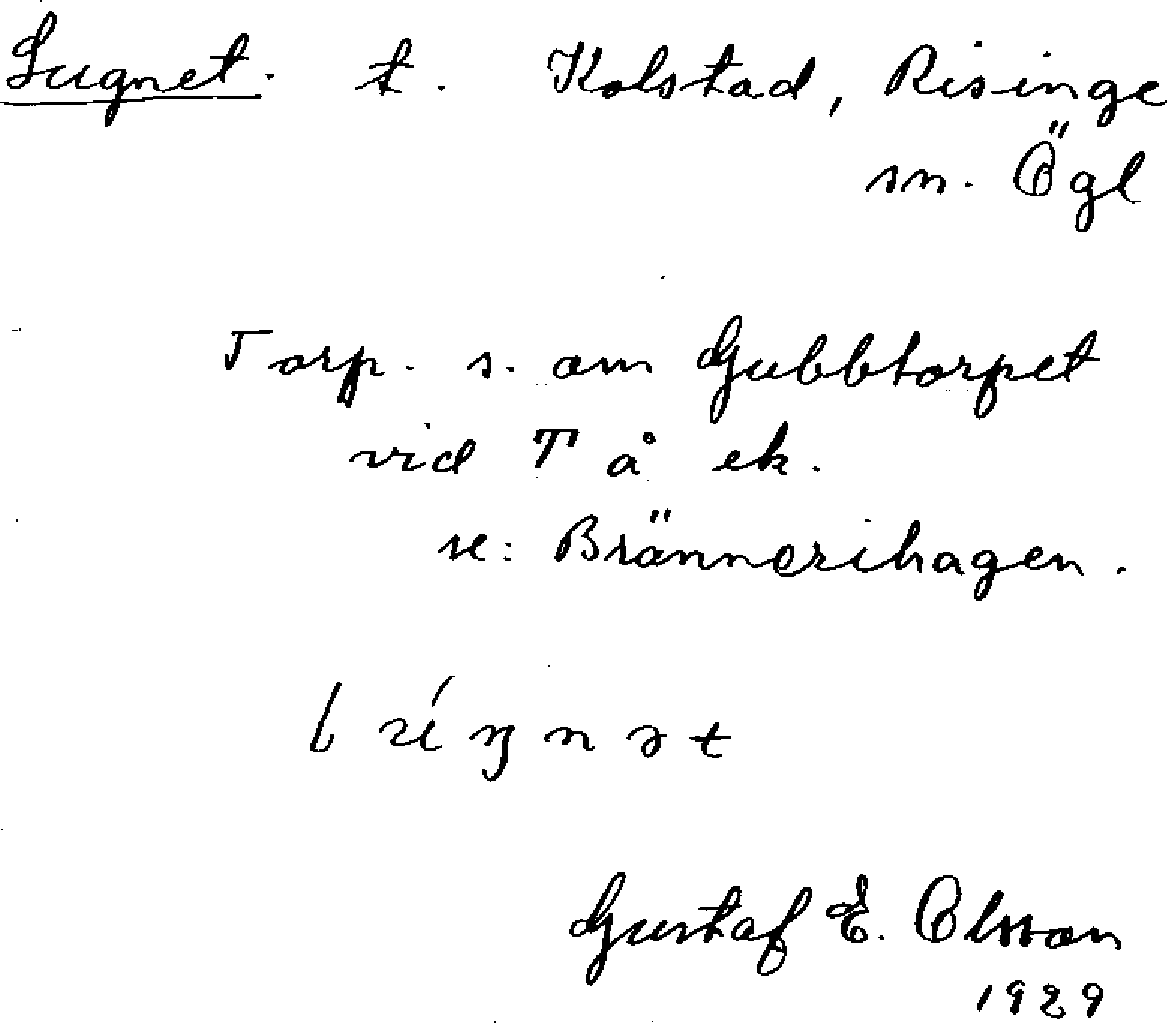 Lugnet. t. Kolstad, Risinge
sn. Ögl
Torp. s. om Gubbtorpet
vid T å ek.
se: Brännerihagen.
Gustaf E. Olsson
1929